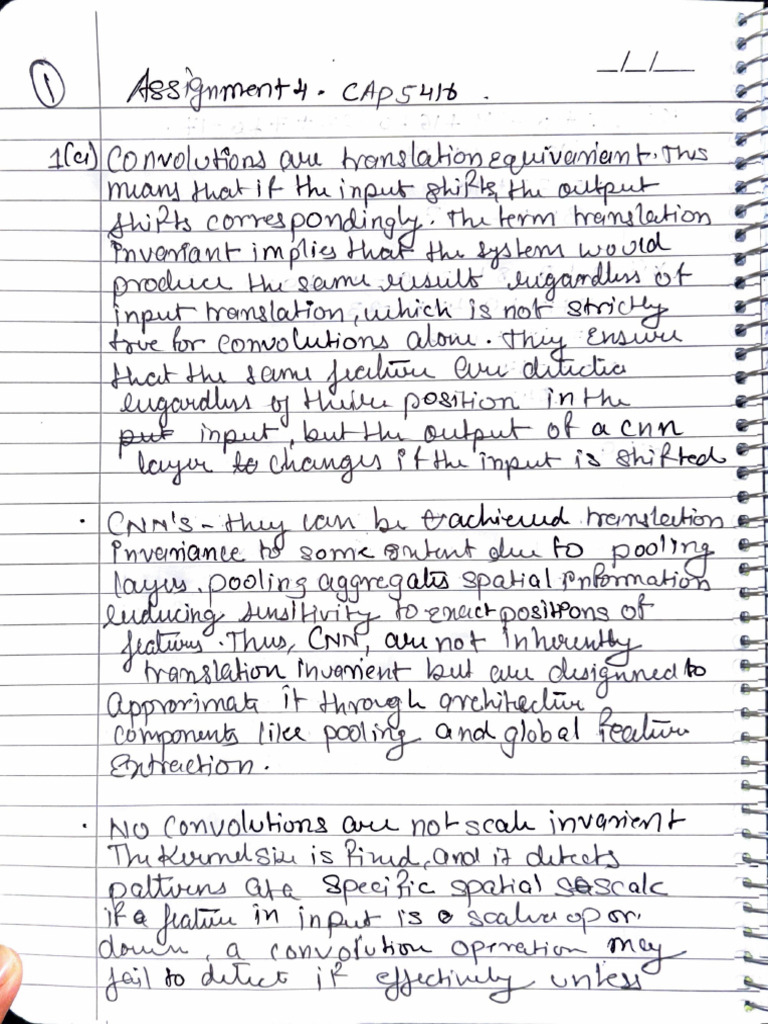 _/_/_
1
Assignment 4. CAP5416.
1(a) Convolutions are translation equivarient. This
means that if the input shifts, the output
shifts correspondingly. The term translation
invariant implies that the system would
produce the same result regardless of
input translation, which is not strictly
true for convolutions alone. They ensure
that the same feature are detected
regardless of their position in the
put input, but the output of a cnn
layer to changes if the input is shifted
. CNN's - they can be achieved translation
invariance to some extent due to pooling
layers. pooling aggregates spatial information
reducing sensitivity to exact positions of
features. Thus, CNN, are not inherently
translation invarient but are designned to
approximate it through architecture
components like pooling and global feature
extraction.
. No convolutions are not scale invarient
The Kernel size is fixed, and it detects
patterns at a specific spatial scale
if a feature in input is scaled up or
down, a convolution operation may
fail to detect it effectively unless